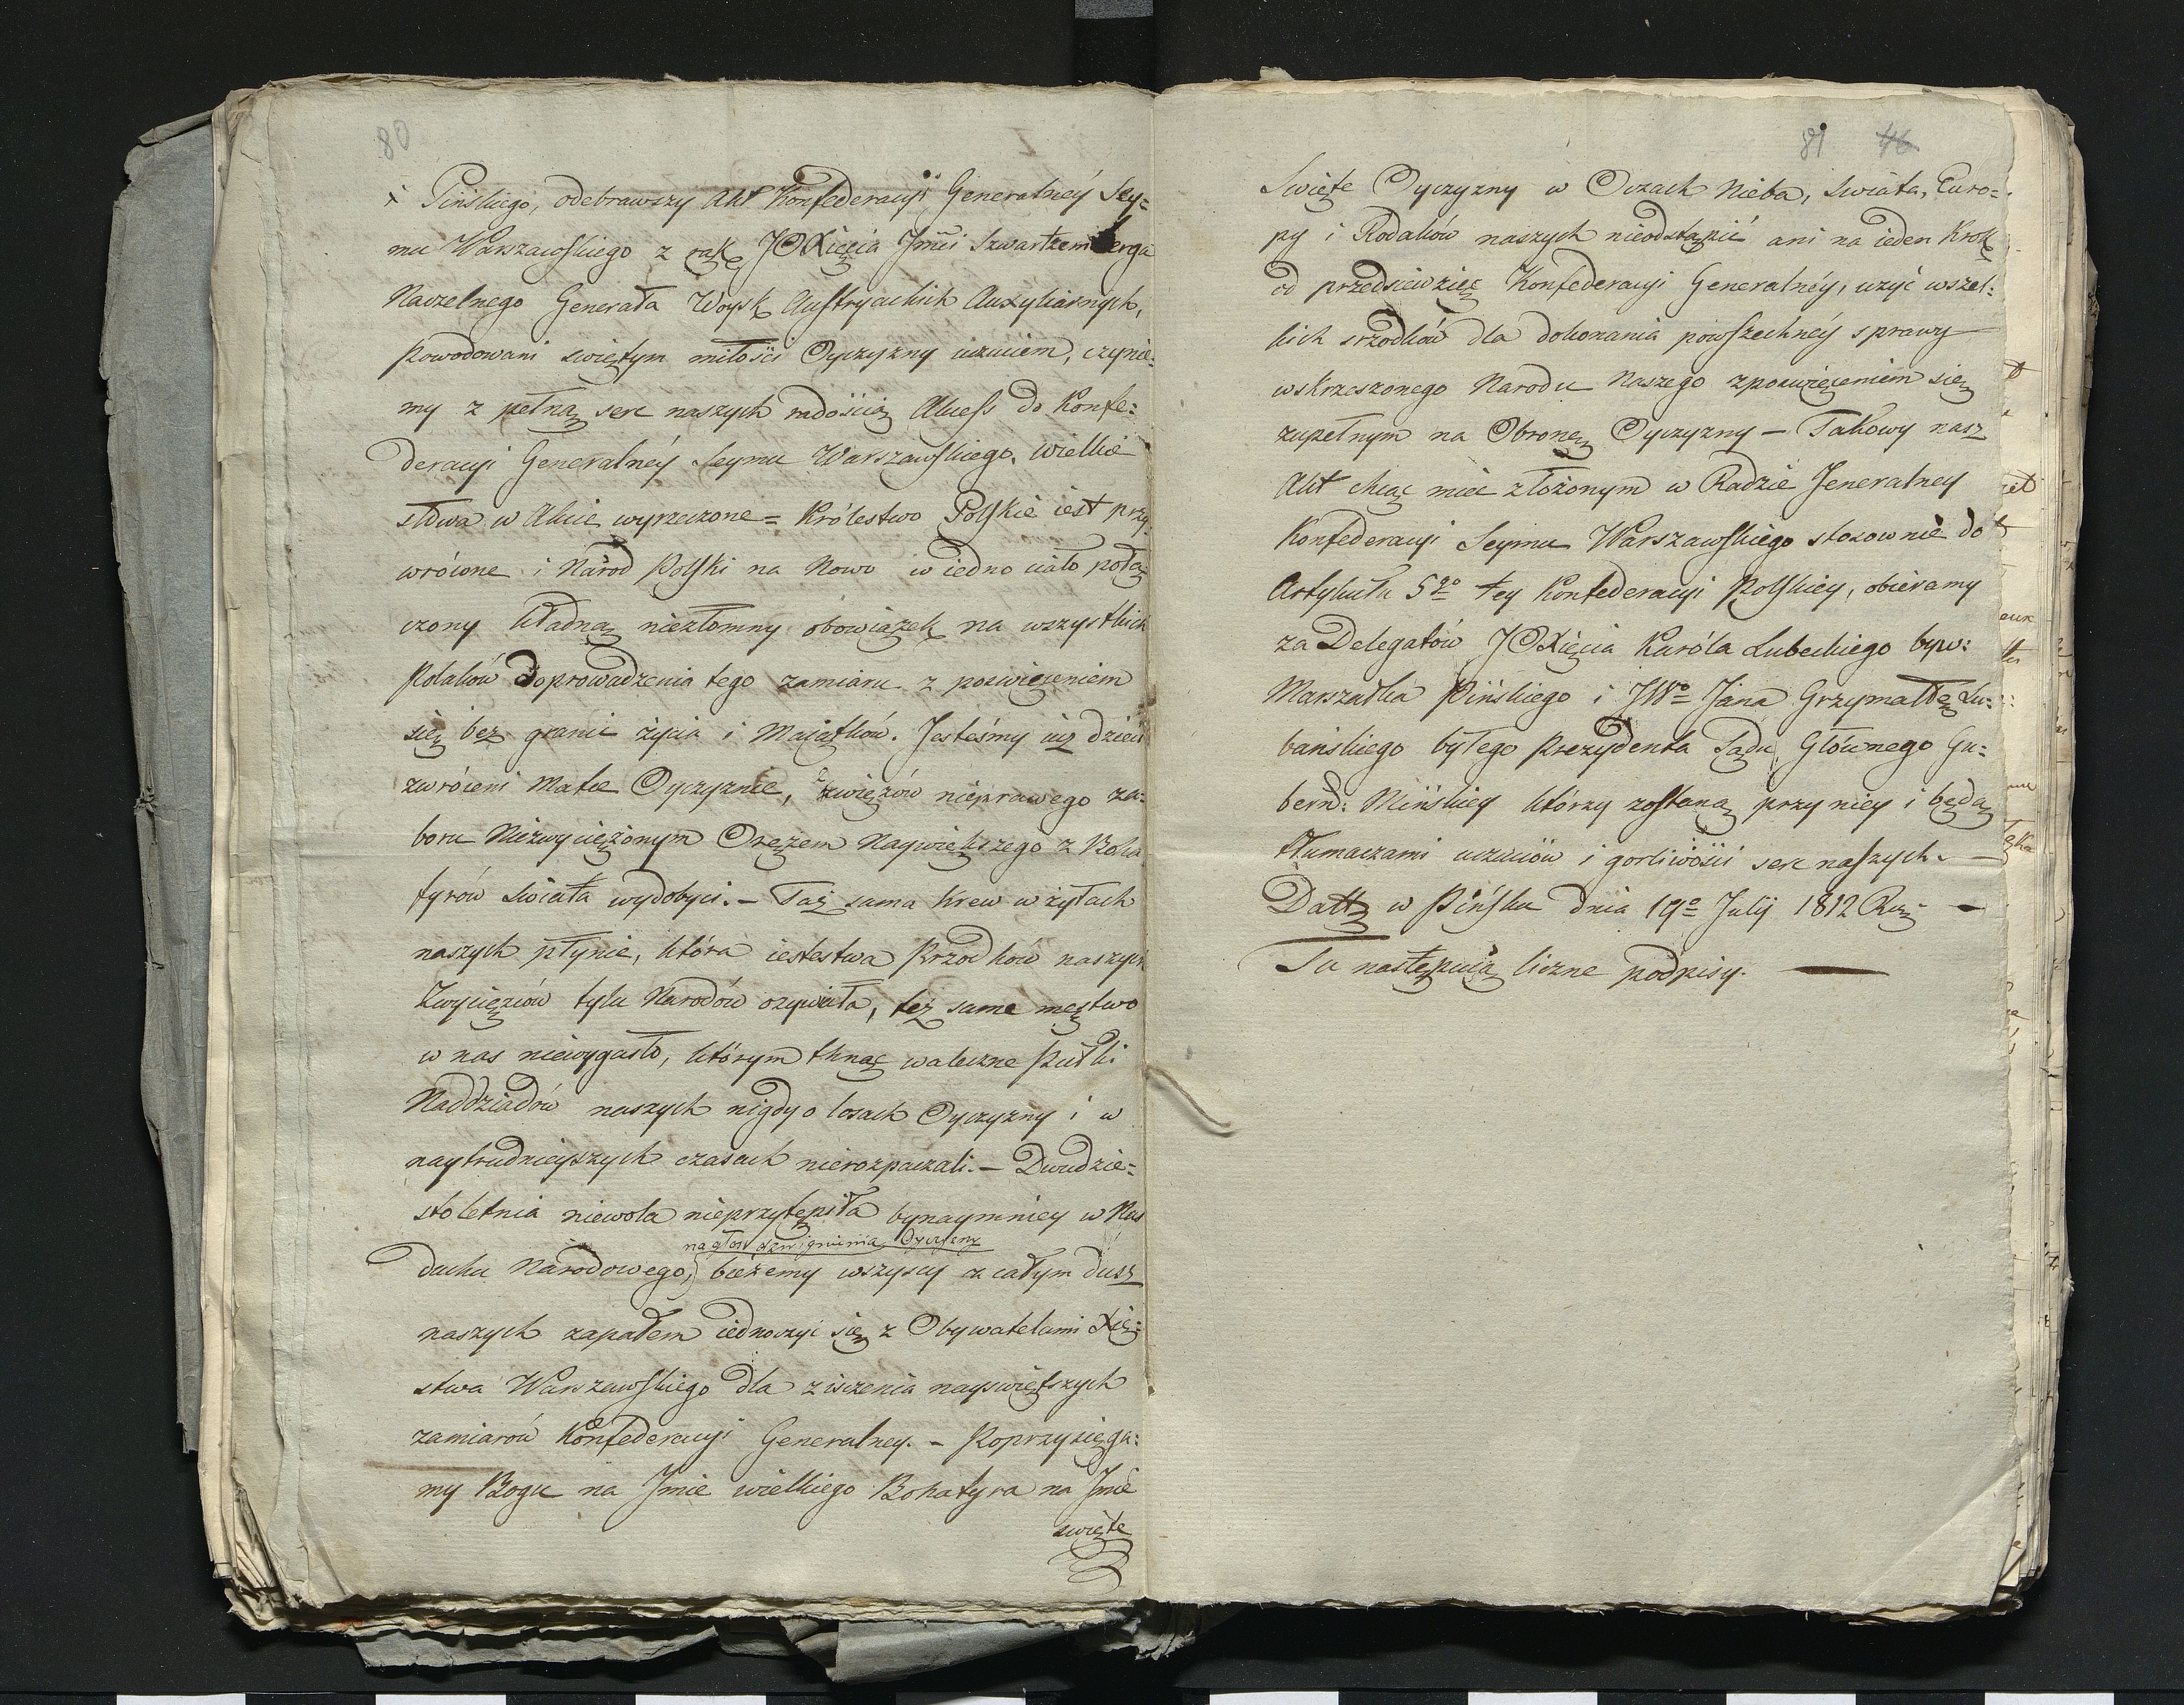 80
i Pińskiego, odebrawszy Akt Konfederacyi Generalnéy Sey=
mu Warszawskiego z rąk JOXięcia Jmci Szwartzemberga
Naczelnego Generała Woysk Austryackich Auxyliarnych,
powodowani swiętym miłości Oyczyzny uczuciem, czynie:
my z pełną serc naszych radością Akcess do Konfe:
deracyi Generalnéy Seymu Warszawskiego. wielkie
słowa w Akcie wyrzeczone = Królestwo Polskie iest przy
wrócone i Naród Polski na Nowo w iedno ciało połą
czony kładną niezłomny obowiązek na wszystkich
Polaków doprowadzenia tego zamiaru z poswięceniem
się bez granic życia i Maiątków. Jesteśmy iuż dzieci
zwróceni Matce Oyczyznie, z więzów nieprawego za:
boru Niezwyciężonym Orężem Naywiększego z Boha
tyrów Swiata wydobyci. – Taż sama Krew w żyłach
naszych płynie, która iestestwa Przodków naszych
Zwyciezców tylu Narodów ożywiała, też same męstwo
w nas niewygasło, którym tknąc waleczne Pułki
Naddziadów naszych nigdy o losach Oyczyzny i w
naytrudnieyszych czasach nierozpaczali. – Dwudzie=
stoletnia niewola nieprzytępiła bynaymniey w Nas
na głos dzwignienia Oyczyzny
ducha Narodowego, bieżemy wszyscy z całym dusz
naszych zapałem iednoczyć się z Obywatelami Xię:
stwa Warszawskiego dla ziszczenia nayswiętszych
zamiarów Konfederacyi Generalney. – Poprzysięga:
my Bogu na Jmie wielkiego Bohatyra na Jmie
swięte
81 46
Swięte Oyczyzny w Oczach Nieba, Swiata, Euro=
py i Rodaków naszych nieodstąpić ani na ieden Krok
od przedsiewzięć Konfederacyi Generalnéy, użyć wszel:
kich srzodków dla dokonania powszechnéy sprawy
wskrzeszonego Narodu Naszego zposwięceniem się
zupełnym na Obronę Oyczyzny – Takowy nasz
Akt chcąc mieć złożonym w Radzie Jeneralney
Konfederacyi Seymu Warszawskiego stosownie do
Artykułu 5go tey Konfederacyi Polskiey, obieramy
za Delegatów JOXięcia Karóla Lubeckiego byw:
Marszałka Pińskiego i JWo Jana Grzymałę Lu:
bańskiego byłego Prezydenta Sądu Głównego Gu:
bern: Mińskiey którzy zostaną przy niey i będą
tłumaczami uczuciów i gorliwości serc naszych. –
Datt w Pińsku dnia 19o July 1812 Ru –
Tu następuią liczne podpisy. —